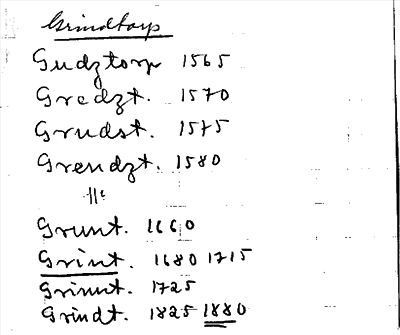 Grindtorp
Gudztorp 1565
Gredzt. 1570
Grudst. 1575
Grendzt. 1580
"
Grunt. 1660
Grint. 1680 1715
Grinnt. 1725
Grindt. 1825 1880